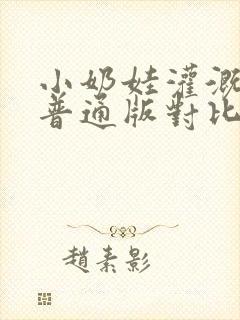 小奶娃灌溉
普通版對比
趙素影